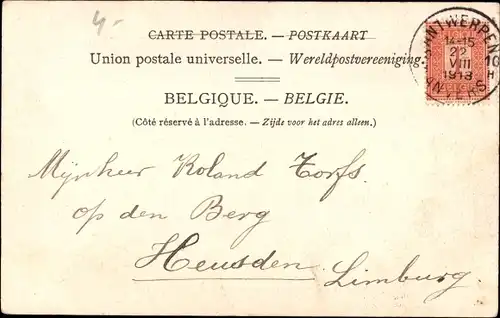 4-
CARTE POSTALE. — POSTKAART
Union postale universelle. — Wereldpostvereeniging.
BELGIQUE. — BELGIE.
(Côté réservé à l'adresse. — Zijde voor het adres alleen.)
ANTWERPEN
14-15
22
VIII
1913
10
H
ANVERS
Mijnheer Roland Torfs.
op den Berg
Heusden. Limburg.